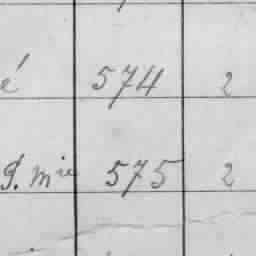 é 574 2
G. mie 575 2